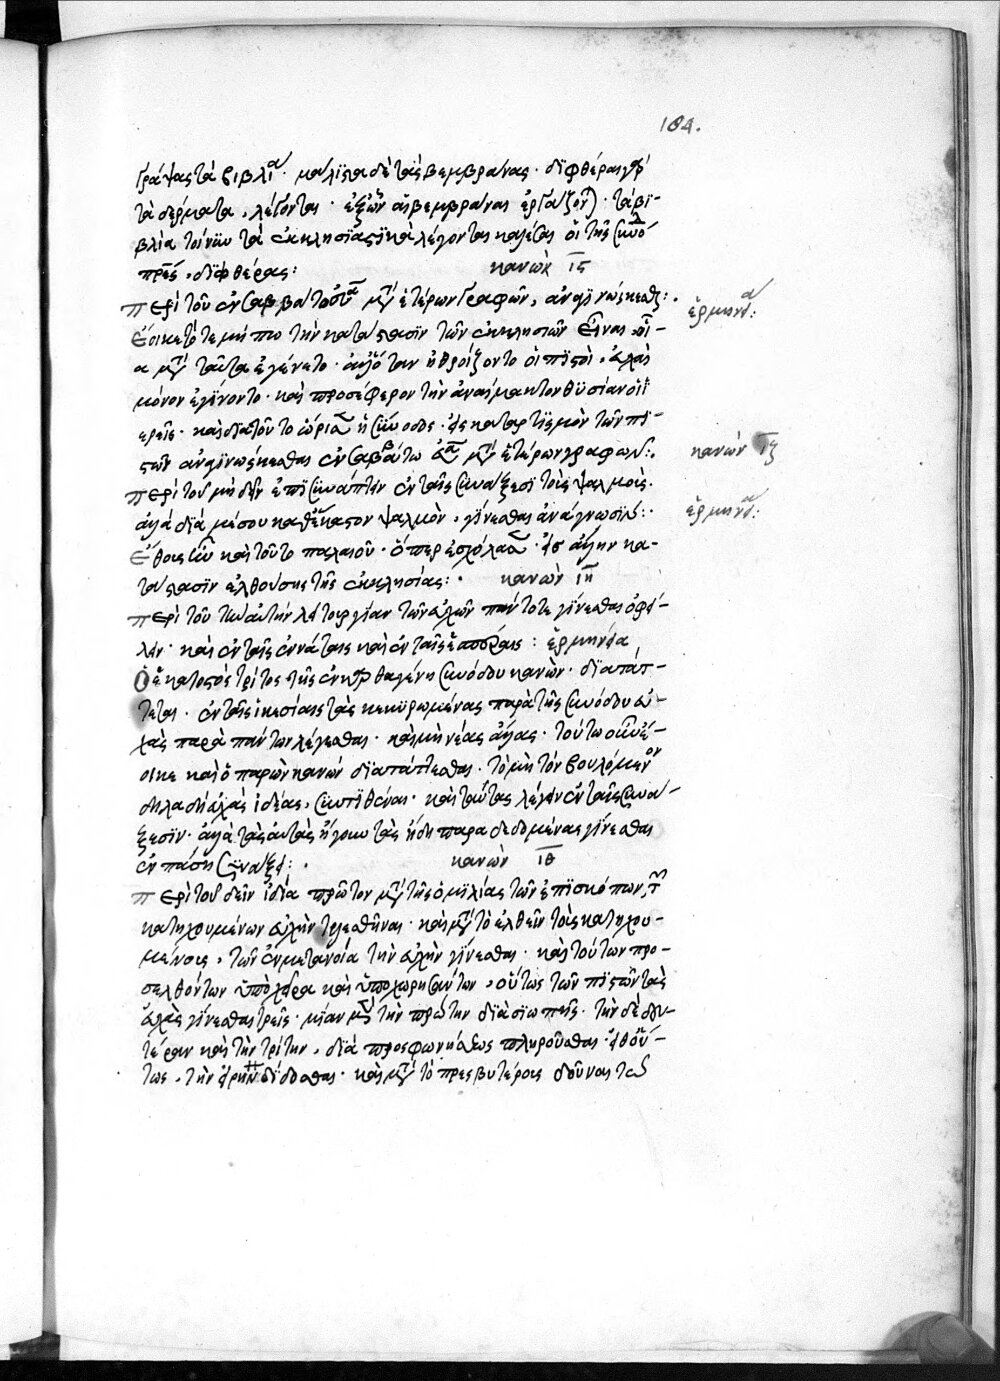 184.
γράψας τὰ βιβλία μάλιστα δὲ τὰς βεμβράνας · διφθέραι γὰρ
τὰ δέρματα λέγονται · ἐξ ὧν αἱ βεμβράναι ἐργάζονται · τὰ βι-
βλία τοίνυν τὰ ἐκκλησίας λέγονται οἱ τῆς
πρες διφθέρας :
κανὼν ις
περὶ τοῦ ἐν σαββάτῳ εὐα μετὰ ἑτέρων γραφῶν, ἀναγινώσκεσθαι :
ἑρμηνεία :
ἔοικε τότε μήπω τὴν κατάστασιν τῶν ἐκκλησιῶν εἶναι οἵ-
α μετὰ ταῦτα ἐγένετο · ὅταν ἠθροίζοντο οἱ πιστοὶ · εὐχαὶ
μόνον ἐγίνοντο · καὶ προσέφερον τὴν ἀναίμακτον θυσίαν οἱ ἱ
ερεῖς · καὶ διὰ τοῦτο ὥρισεν ἡ σύνοδος · εἰς καταρτισμὸν τῶν πι-
στῶν ἀναγινώσκεσθαι ἐν σαββάτω εὐα μετὰ ἑτέρων γραφῶν :
κανὼν ιζ
περὶ τοῦ μὴ δεῖν ἐπισυνάπτειν ἐν ταῖς συνάξεσι τοὺς ψαλμούς.
ἀλλὰ διὰ μέσου καθ' ἕκαστον ψαλμὸν, γίνεσθαι ἀνάγνωσιν :
ἑρμηνεία :
ἔθος ἦν καὶ τοῦτο παλαιοῦ · ὅπερ ἐσχόλασεν · εἰς ἄλλην κα-
τάστασιν ἐλθούσης τῆς ἐκκλησίας :
κανὼν ιη
περὶ τοῦ τὴν αὐτὴν λειτουργίαν τῶν εὐχῶν πάντοτε γίνεσθαι ὀφεί-
λειν · καὶ ἐν ταῖς ἐννάταις καὶ ἐν ταῖς ἑσπέραις : ἑρμηνεία
Ὁ ἑκατοστὸς τρίτος τῆς ἐν καρθαγένῃ συνόδου κανὼν · διατάτ-
τεται · ἐν ταῖς ἱκεσίαις τὰς κεκυρωμένας παρὰ τῆς συνόδου εὐ-
χὰς παρὰ πάντων λέγεσθαι · καὶ μὴ νέας ἄλλας · τούτω οὖν ἔ-
οικε καὶ ὁ παρὼν κανὼν διατάττεσθαι · τὸ μὴ τὸν βουλόμενον
δηλαδὴ εὐχὰς ἰδίας, συντιθέναι · καὶ ταύτας λέγειν ἐν ταῖς συνά-
ξεσιν · ἀλλὰ τὰς αὐτὰς ἤγουν τὰς ἤδη παραδεδομένας γίνεσθαι
ἐν πάσῃ συνάξει :
κανὼν ιθ
περὶ τοῦ δεῖν ἰδία πρῶτον μετὰ τῆς ὁμιλίας τῶν ἐπισκόπων, τῶν
κατηχουμένων εὐχὴν τελεσθῆναι · καὶ μετὰ τὸ ἐλθεῖν τοὺς κατηχου-
μένους, τῶν ἐν μετανοία τὴν εὐχὴν γίνεσθαι · καὶ τούτων προ-
σελθόντων ὑπὸ χεῖρα καὶ ὑποχωρησάντων, οὕτως τῶν πιστῶν τὰς
εὐχὰς γίνεσθαι τρεῖς · μίαν μὲν τὴν πρώτην διὰ σιωπῆς · τὴν δὲ δευ-
τέραν καὶ τὴν τρίτην, διὰ προσφωνήσεως πληροῦσθαι · εἶθ' οὕ-
τως, τὴν εἰρήνην δίδοσθαι · καὶ μετὰ τὸ πρεσβυτέρους δοῦναι τῷ